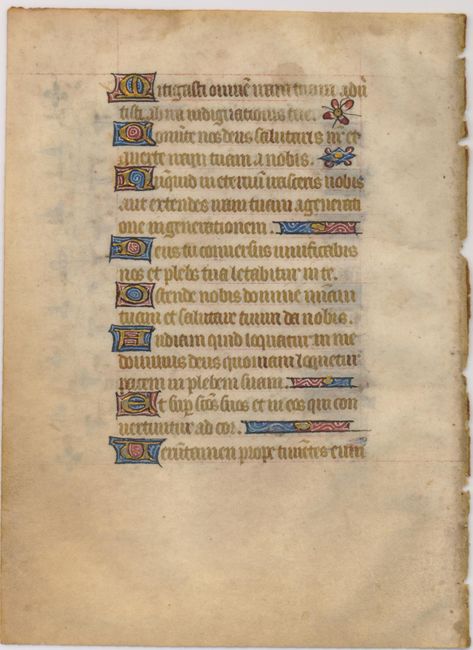 Mitigasti omnē iram tuam adū
tisti ab ira indignationis tue.
Conūte nos deus salutaris nr̄ et
auerte iram tuam a nobis.
Nūquid in eternū irasceris nobis
aut extendes iram tuam a generati
one in generationem.
Deus tu conuersus uiuificabis
nos et plebs tua letabitur in te.
Ostende nobis domine miam
tuam et salutare tuum da nobis.
Audiam quid loquatur in me
dominus deus quoniam loquetur
pacem in plebem suam.
Et sup̄ scōs suos et in eos qui con
uertuntur ad cor.
Uerūtamen prope timētes eum